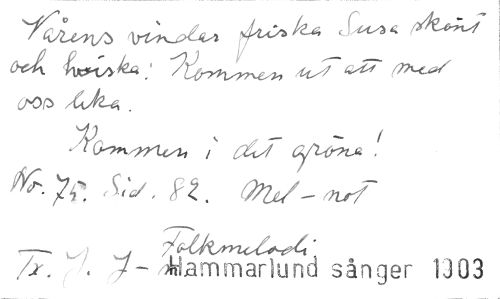 Vårens vindar friska Susa skönt
och hviska: Kommen ut att med
oss leka.
Kommen i det gröna!
No. 75. Sid. 82. Mel-not
Folkmelodi
Tx. J. J- Hammarlund sånger 1903